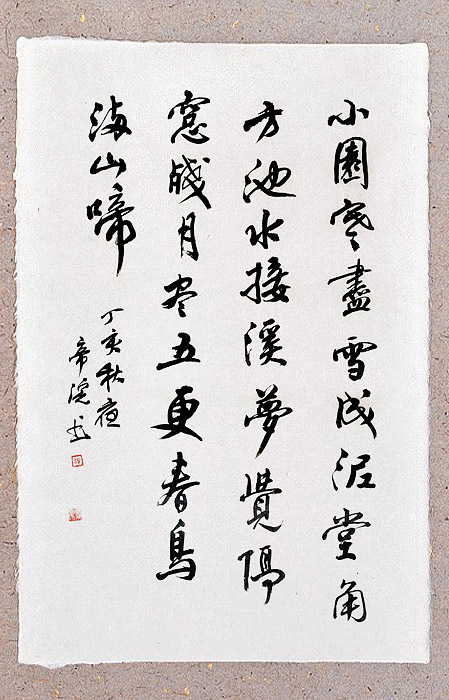 小園寒盡雪成泥堂角
方池水接溪夢覺隔
窓殘月尽五更春鳥
満山啼
丁亥秋夜
帝滢书